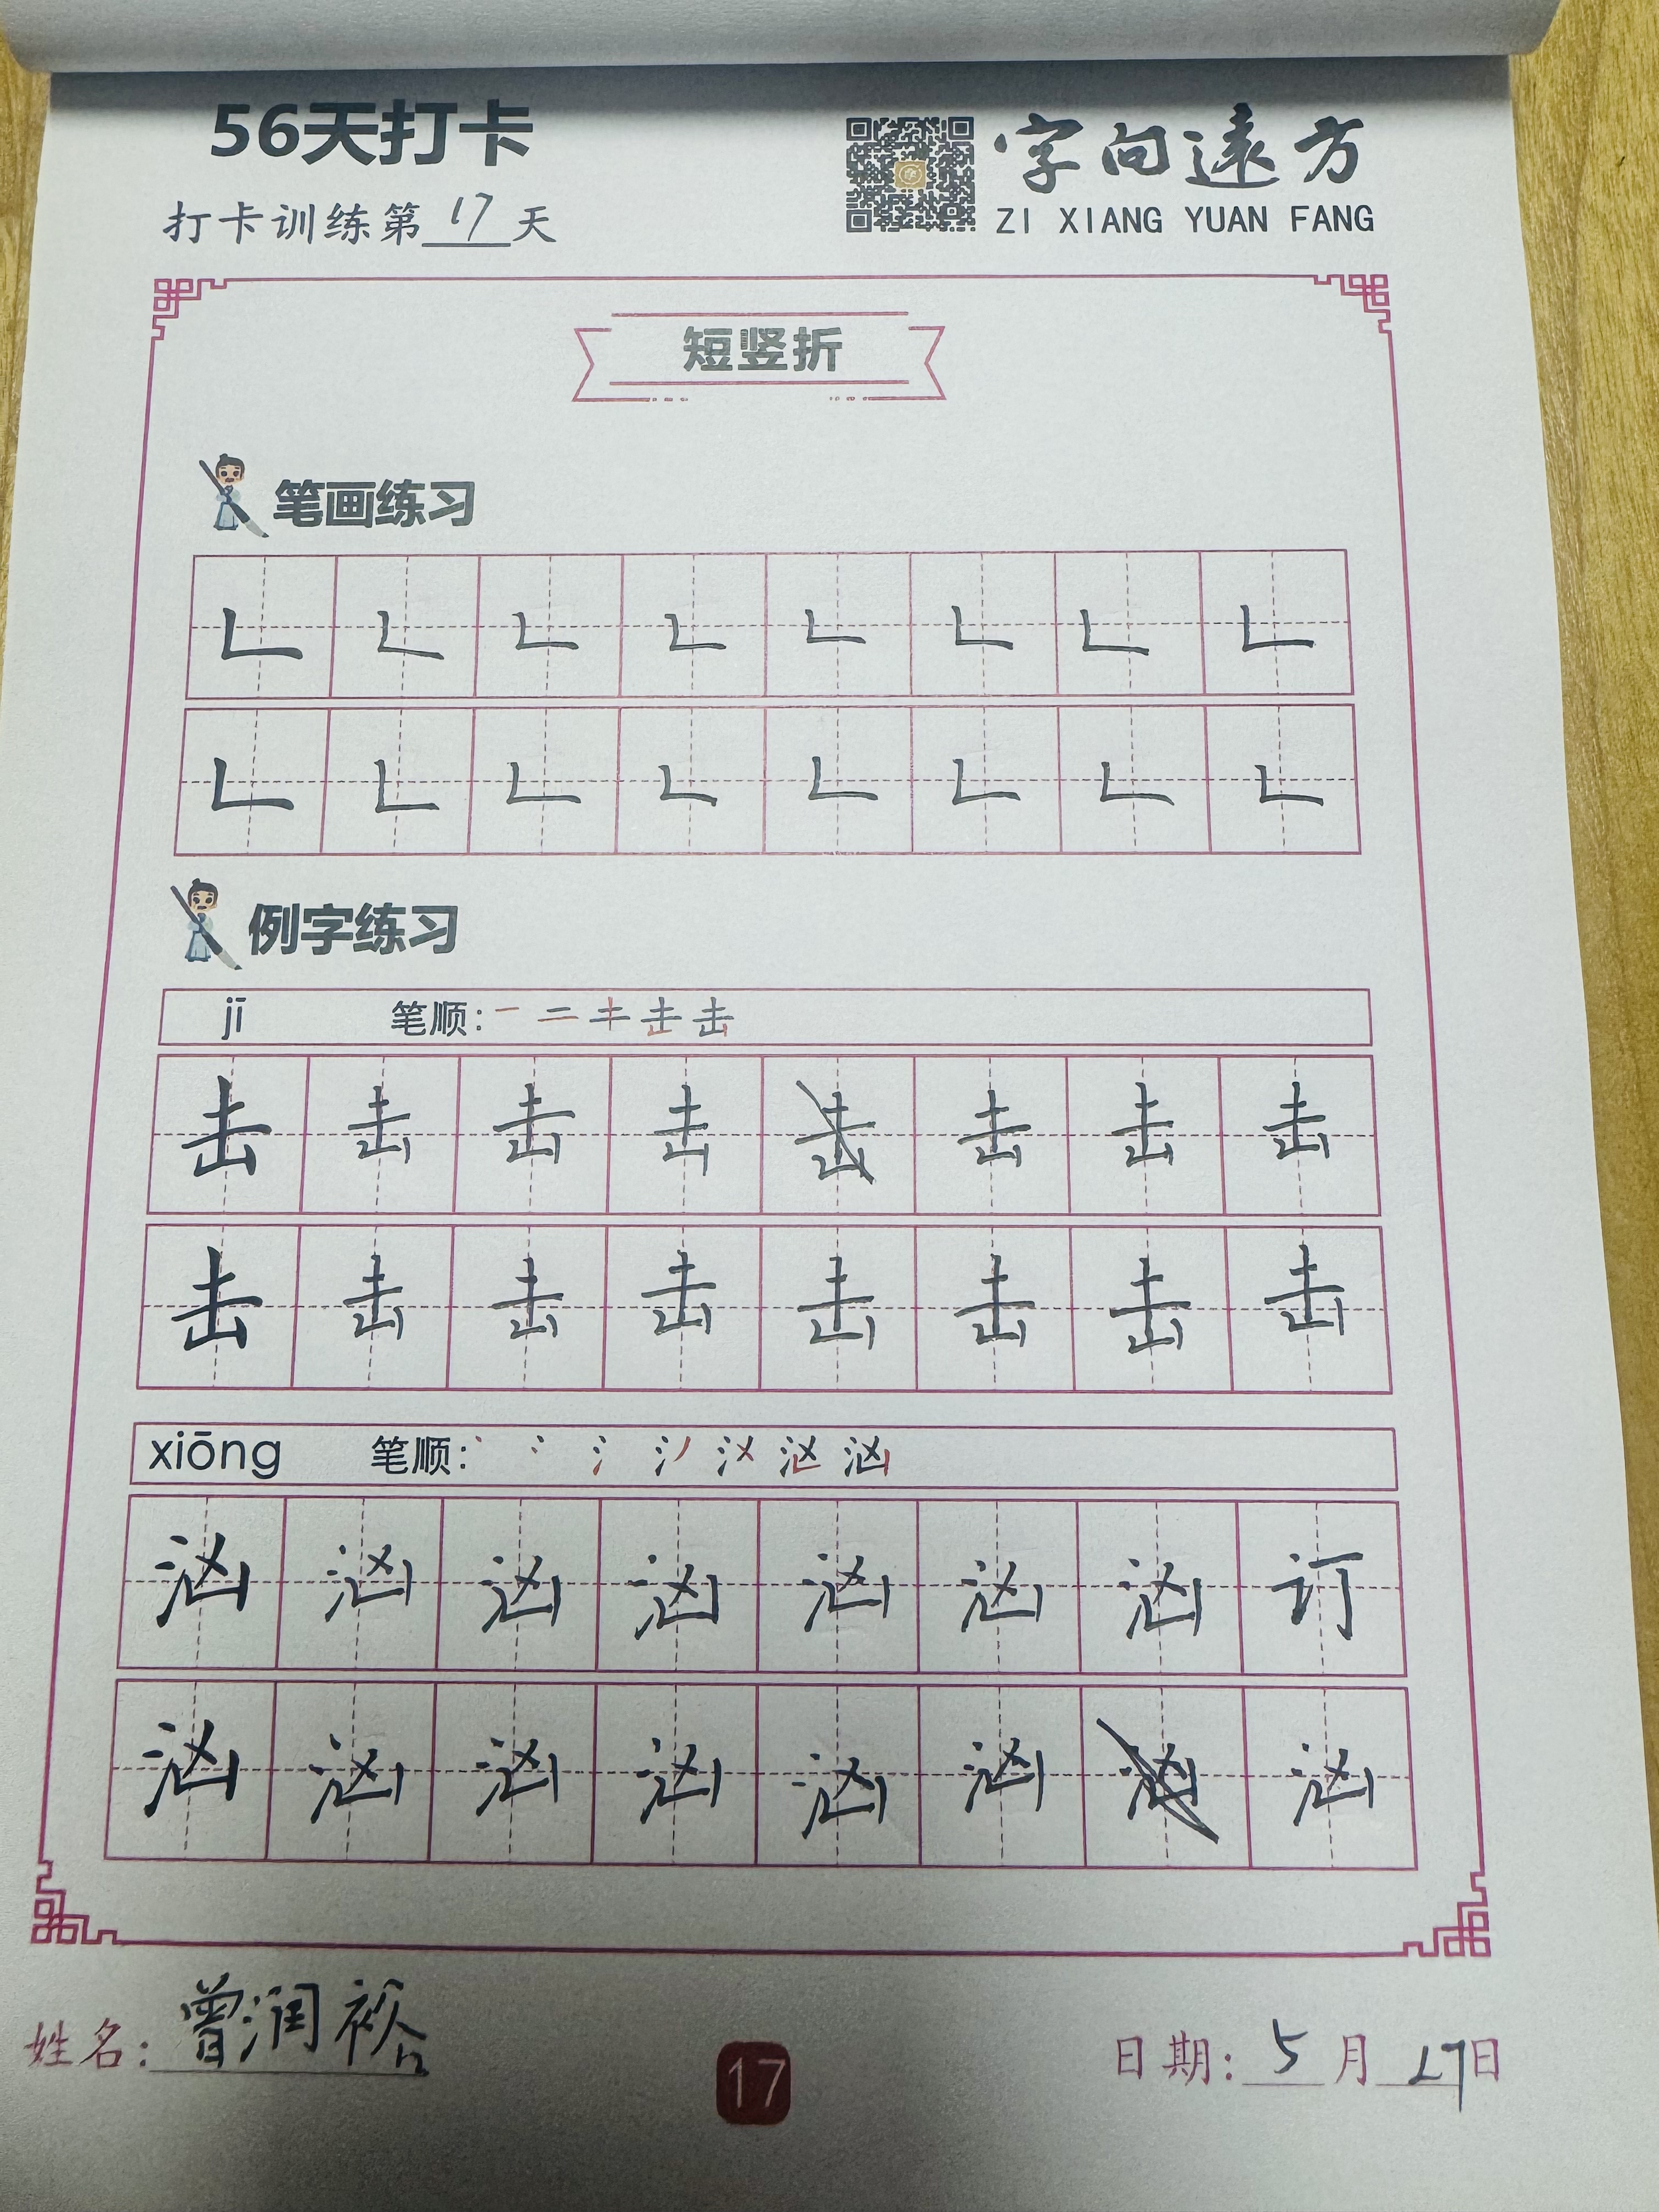 56天打卡
字向遠方
打卡训练第17天
ZI XIANG YUAN FANG
短竖折
笔画练习
㇗ ㇗ ㇗ ㇗ ㇗ ㇗ ㇗ ㇗
㇗ ㇗ ㇗ ㇗ ㇗ ㇗ ㇗ ㇗
例字练习
jī 笔顺: 一 二 キ 击 击
击 击 击 击 击 击 击 击
击 击 击 击 击 击 击 击
xiōng 笔顺: 丶 冫 氵 汹
汹 汹 汹 汹 汹 汹 汹 订
汹 汹 汹 汹 汹 汹 汹 汹
姓名: 曾润裕
17
日期: 5月 日